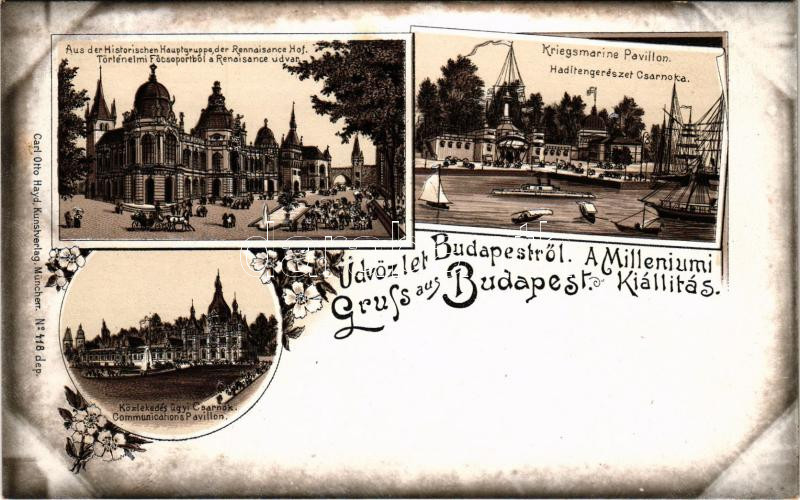 Aus der Historischen Hauptgruppe, der Rennaisance Hof.
Történelmi Főcsoportból a Renaisance udvar.
Kriegsmarine Pavillon.
Haditengerészet Csarnoka.
Carl Otto Hayd, Kunstverlag, München. No 418 dep.
Üdvözlet Budapestről. A Milleniumi
Gruss aus Budapest. Kiállitás.
Közlekedés ügyi Csarnok.
Communications Pavillon.